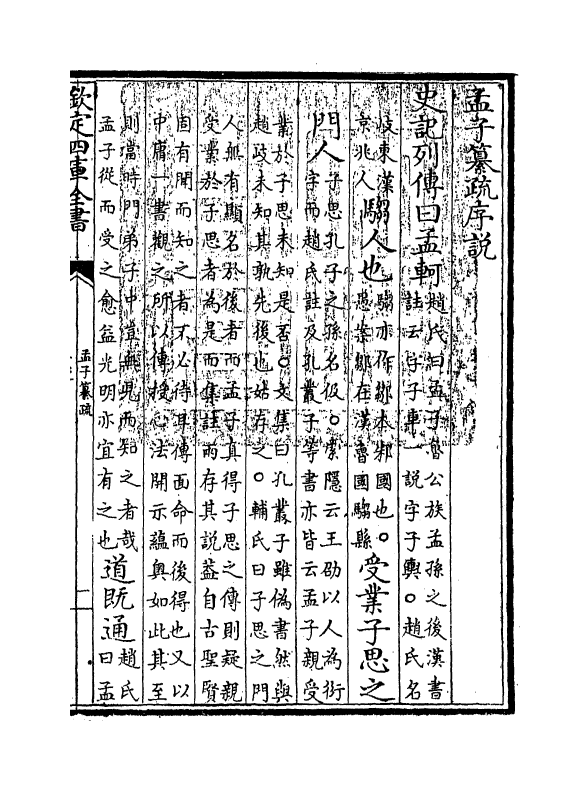 孟子纂疏序説
史記列傳曰孟軻
趙氏曰孟子魯公族孟孫之後漢書
註云字子車一說字子輿○趙氏名
岐東漢
京兆人
騶人也
騶亦作鄒本邾國也○
愚案鄒在漢魯國騶縣
受業子思之
門人
子思孔子之孫名伋○索隱云王劭以人為衍
字而趙氏註及孔叢子等書亦皆云孟子親受
業於子思未知是否○文集曰孔叢子雖偽書然與
趙岐未知其孰先後也姑存之○輔氏曰子思之門
人無有顯名於後者而孟子真得子思之傳則疑親
受業於子思者為是而集註兩存其説蓋自古聖賢
固有聞而知之者不必待耳傳面命而後得也又以
中庸一書觀之所以傳授心法開示蘊奥如此其至
則當時門弟子中豈無見而知之者哉
孟子從而受之愈益光明亦宜有之也
道既通
趙氏
曰孟
欽定四庫全書
孟子纂疏
二